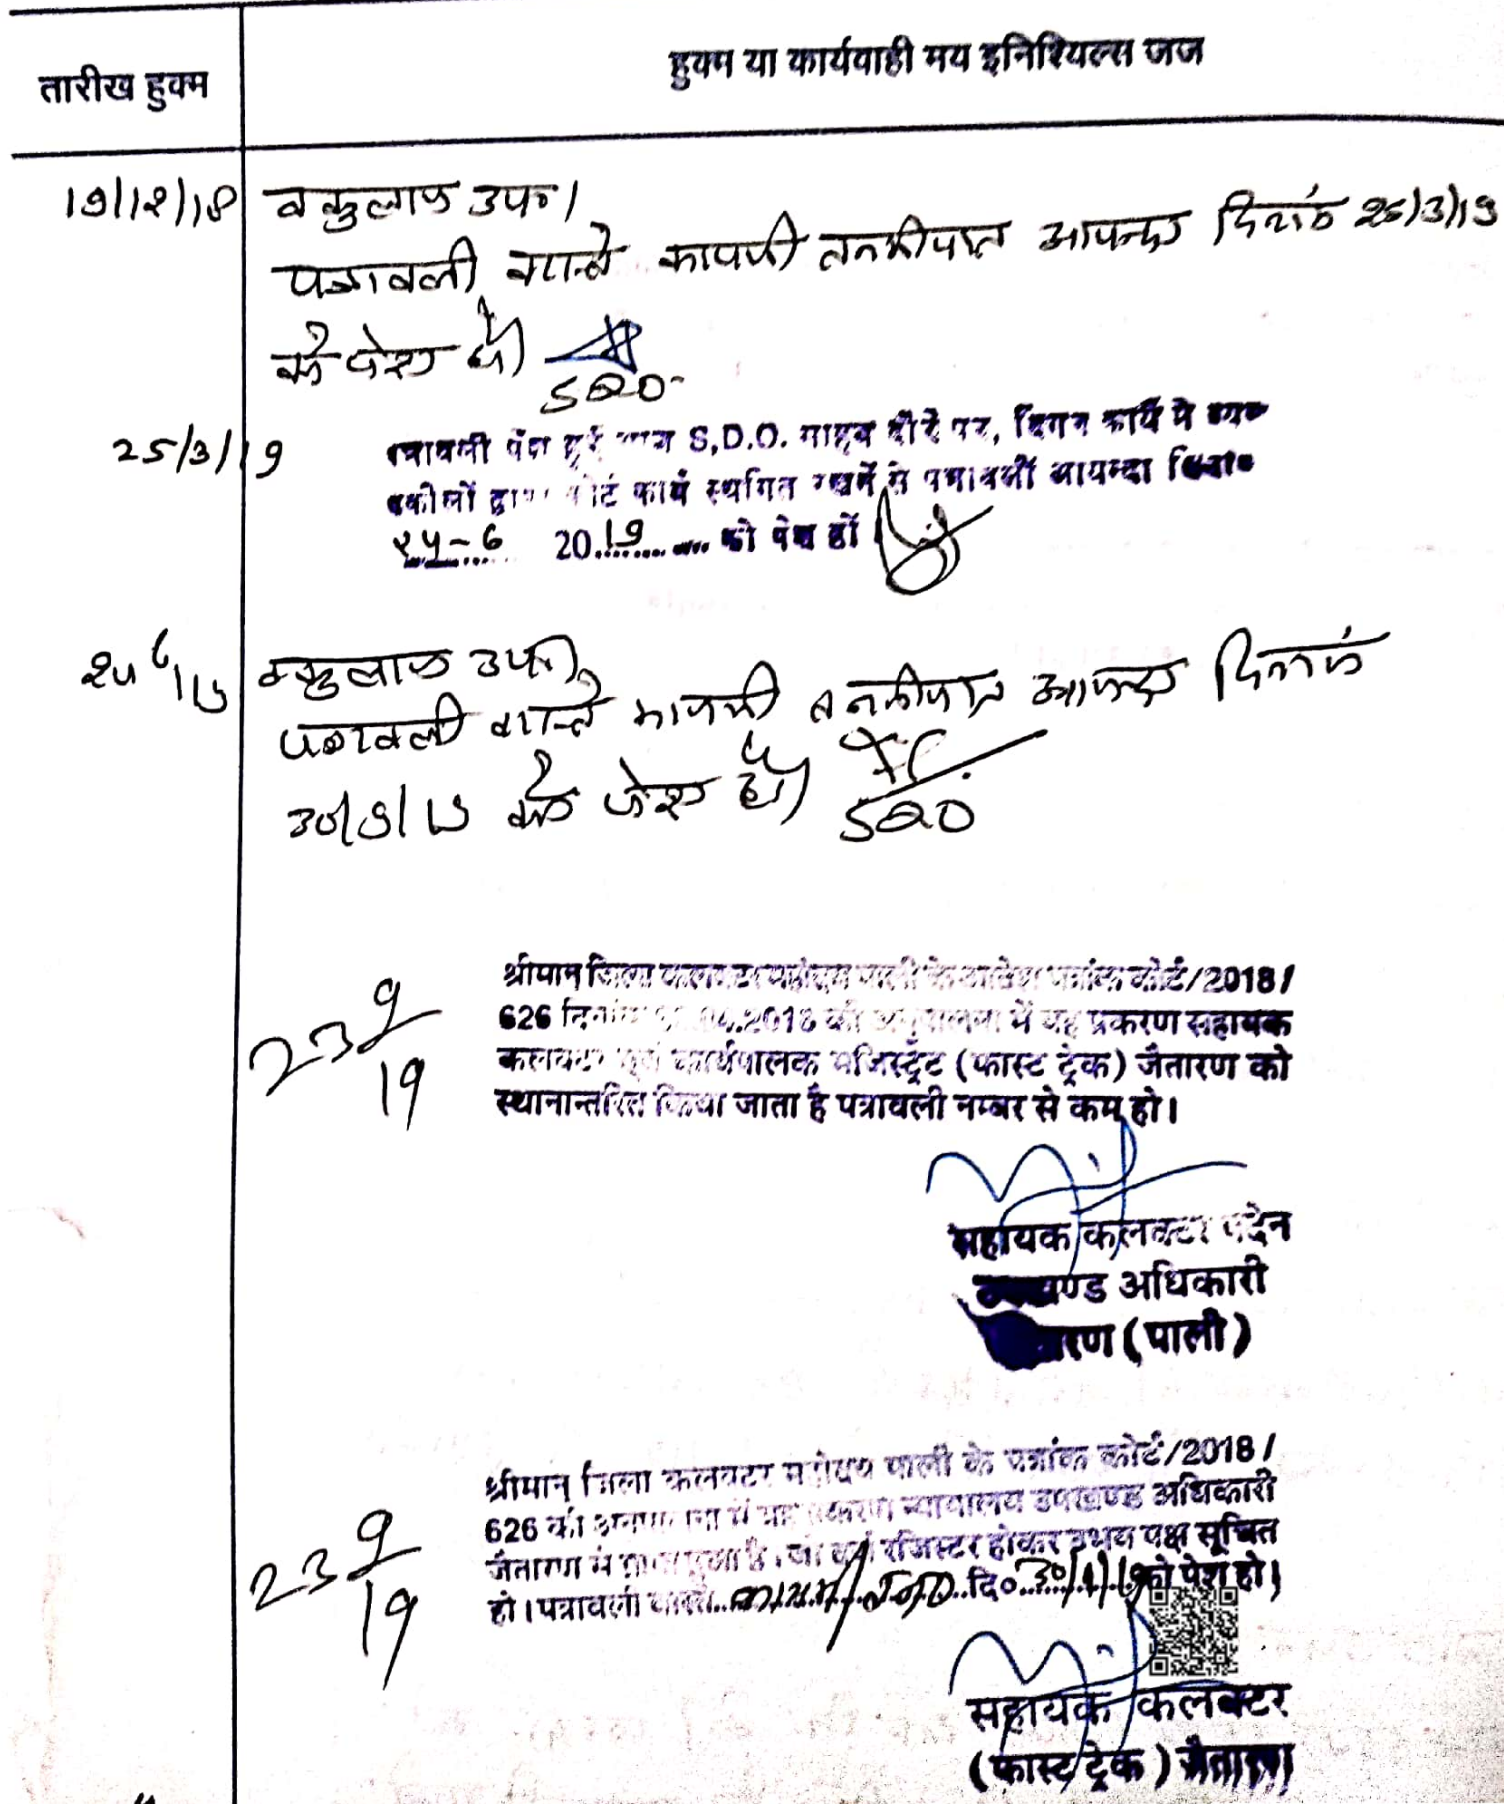 तारीख हुक्म
हुक्म या कार्यवाही मय इनिशियल्स जज
19/12/18
वकुलाए उप०।
पत्रावली वास्ते कायमी तनकीयात आयन्दा दिनांक 25/3/19
को पेश हो।
SDO
25/3/19
पत्रावली पेश हुई S.D.O. साहब दौरे पर, कार्य मे व्यस्त
वकीलों द्वारा कोर्ट कार्य स्थगित रखने से पत्रावली आयन्दा दिनांक
25-6 2019 को पेश हों
25/6/19
वकुलाए उप०।
पत्रावली वास्ते कायमी तनकीयात आयन्दा दिनांक
30/9/19 को पेश हो।
SDO
23 9/19
श्रीमान जिला कलक्टर महोदय पाली के आदेश पत्रांक कोर्ट/2018/
626 दिनांक .04.2018 की अनुपालना में यह प्रकरण सहायक
कलक्टर एवं कार्यपालक मजिस्ट्रेट (फास्ट ट्रेक) जैतारण को
स्थानान्तरित किया जाता है पत्रावली नम्बर से कम हो।
सहायक कलक्टर पदेन
उपखण्ड अधिकारी
जैतारण (पाली)
23 9/19
श्रीमान् जिला कलक्टर महोदय पाली के पत्रांक कोर्ट/2018/
626 की अनुपालना में यह प्रकरण न्यायालय उपखण्ड अधिकारी
जैतारण से प्राप्त हुआ है। जो दर्ज रजिस्टर होकर उभय पक्ष सूचित
हो। पत्रावली वास्ते दि० को पेश हो।
सहायक कलक्टर
(फास्ट ट्रेक) जैतारण